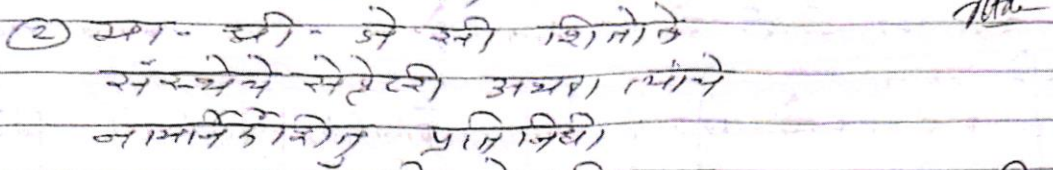 ② मा. श्री. जे सी शितोळे
संस्थेचे सेक्रेटरी अथवा त्यांचे
नामनिर्देशित प्रतिनिधी